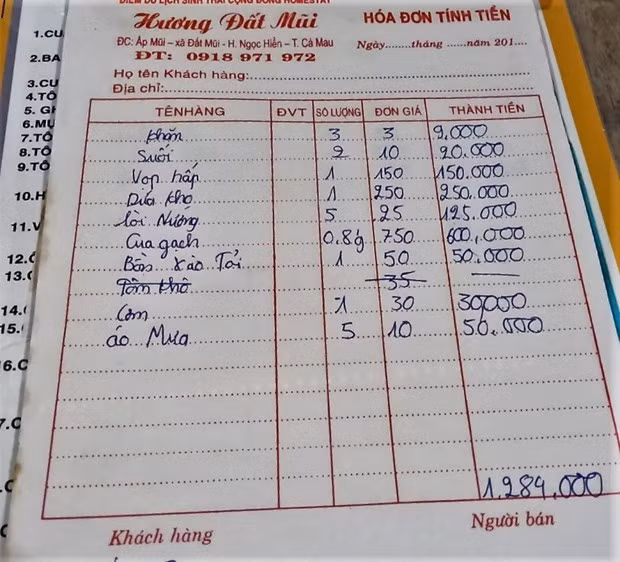 ĐIỂM DU LỊCH SINH THÁI CỘNG ĐỒNG HOMESTAY
Hương Đất Mũi
HÓA ĐƠN TÍNH TIỀN
ĐC: Ấp Mũi – xã Đất Mũi - H. Ngọc Hiển – T. Cà Mau
Ngày........tháng ......năm 201....
ĐT: 0918 971 972
Họ tên Khách hàng:
Địa chỉ:
TÊN HÀNG ĐVT SỐ LƯỢNG ĐƠN GIÁ THÀNH TIỀN
Khăn 3 3 9.000
Suối 2 10 20.000
Vọp hấp 1 150 150.000
Dứa kho 1 250 250.000
Lòi Nướng 5 25 125.000
Cua gạch 0.8g 750 600.000
Bồn xào Tỏi 1 50 50.000
Tôm khô 35
Cơm 1 30 30000
áo Mưa 5 10 50.000
1.284.000
Khách hàng
Người bán
1.CU
2.BA
3.CU
4.TÔ
5. GI
6.MỰ
7.TÔ
8.TÔ
9.TÔ
10.H
11.V